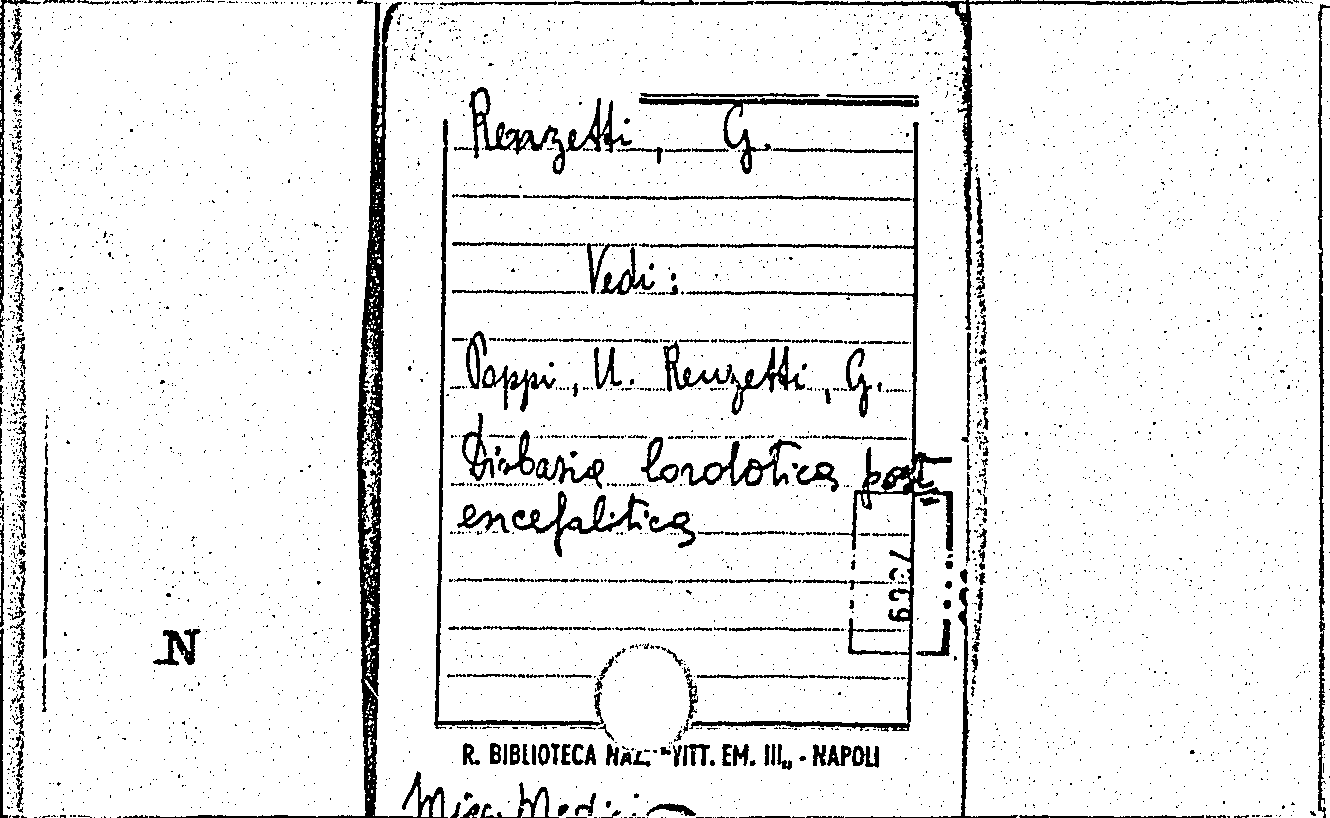 Renzetti, G.
Vedi:
Pappi, U. Renzetti, G.
Disbasia lordotica post
encefalitica
N
R. BIBLIOTECA NAZ. "VITT. EM. III„ - NAPOLI
Misc. Medici